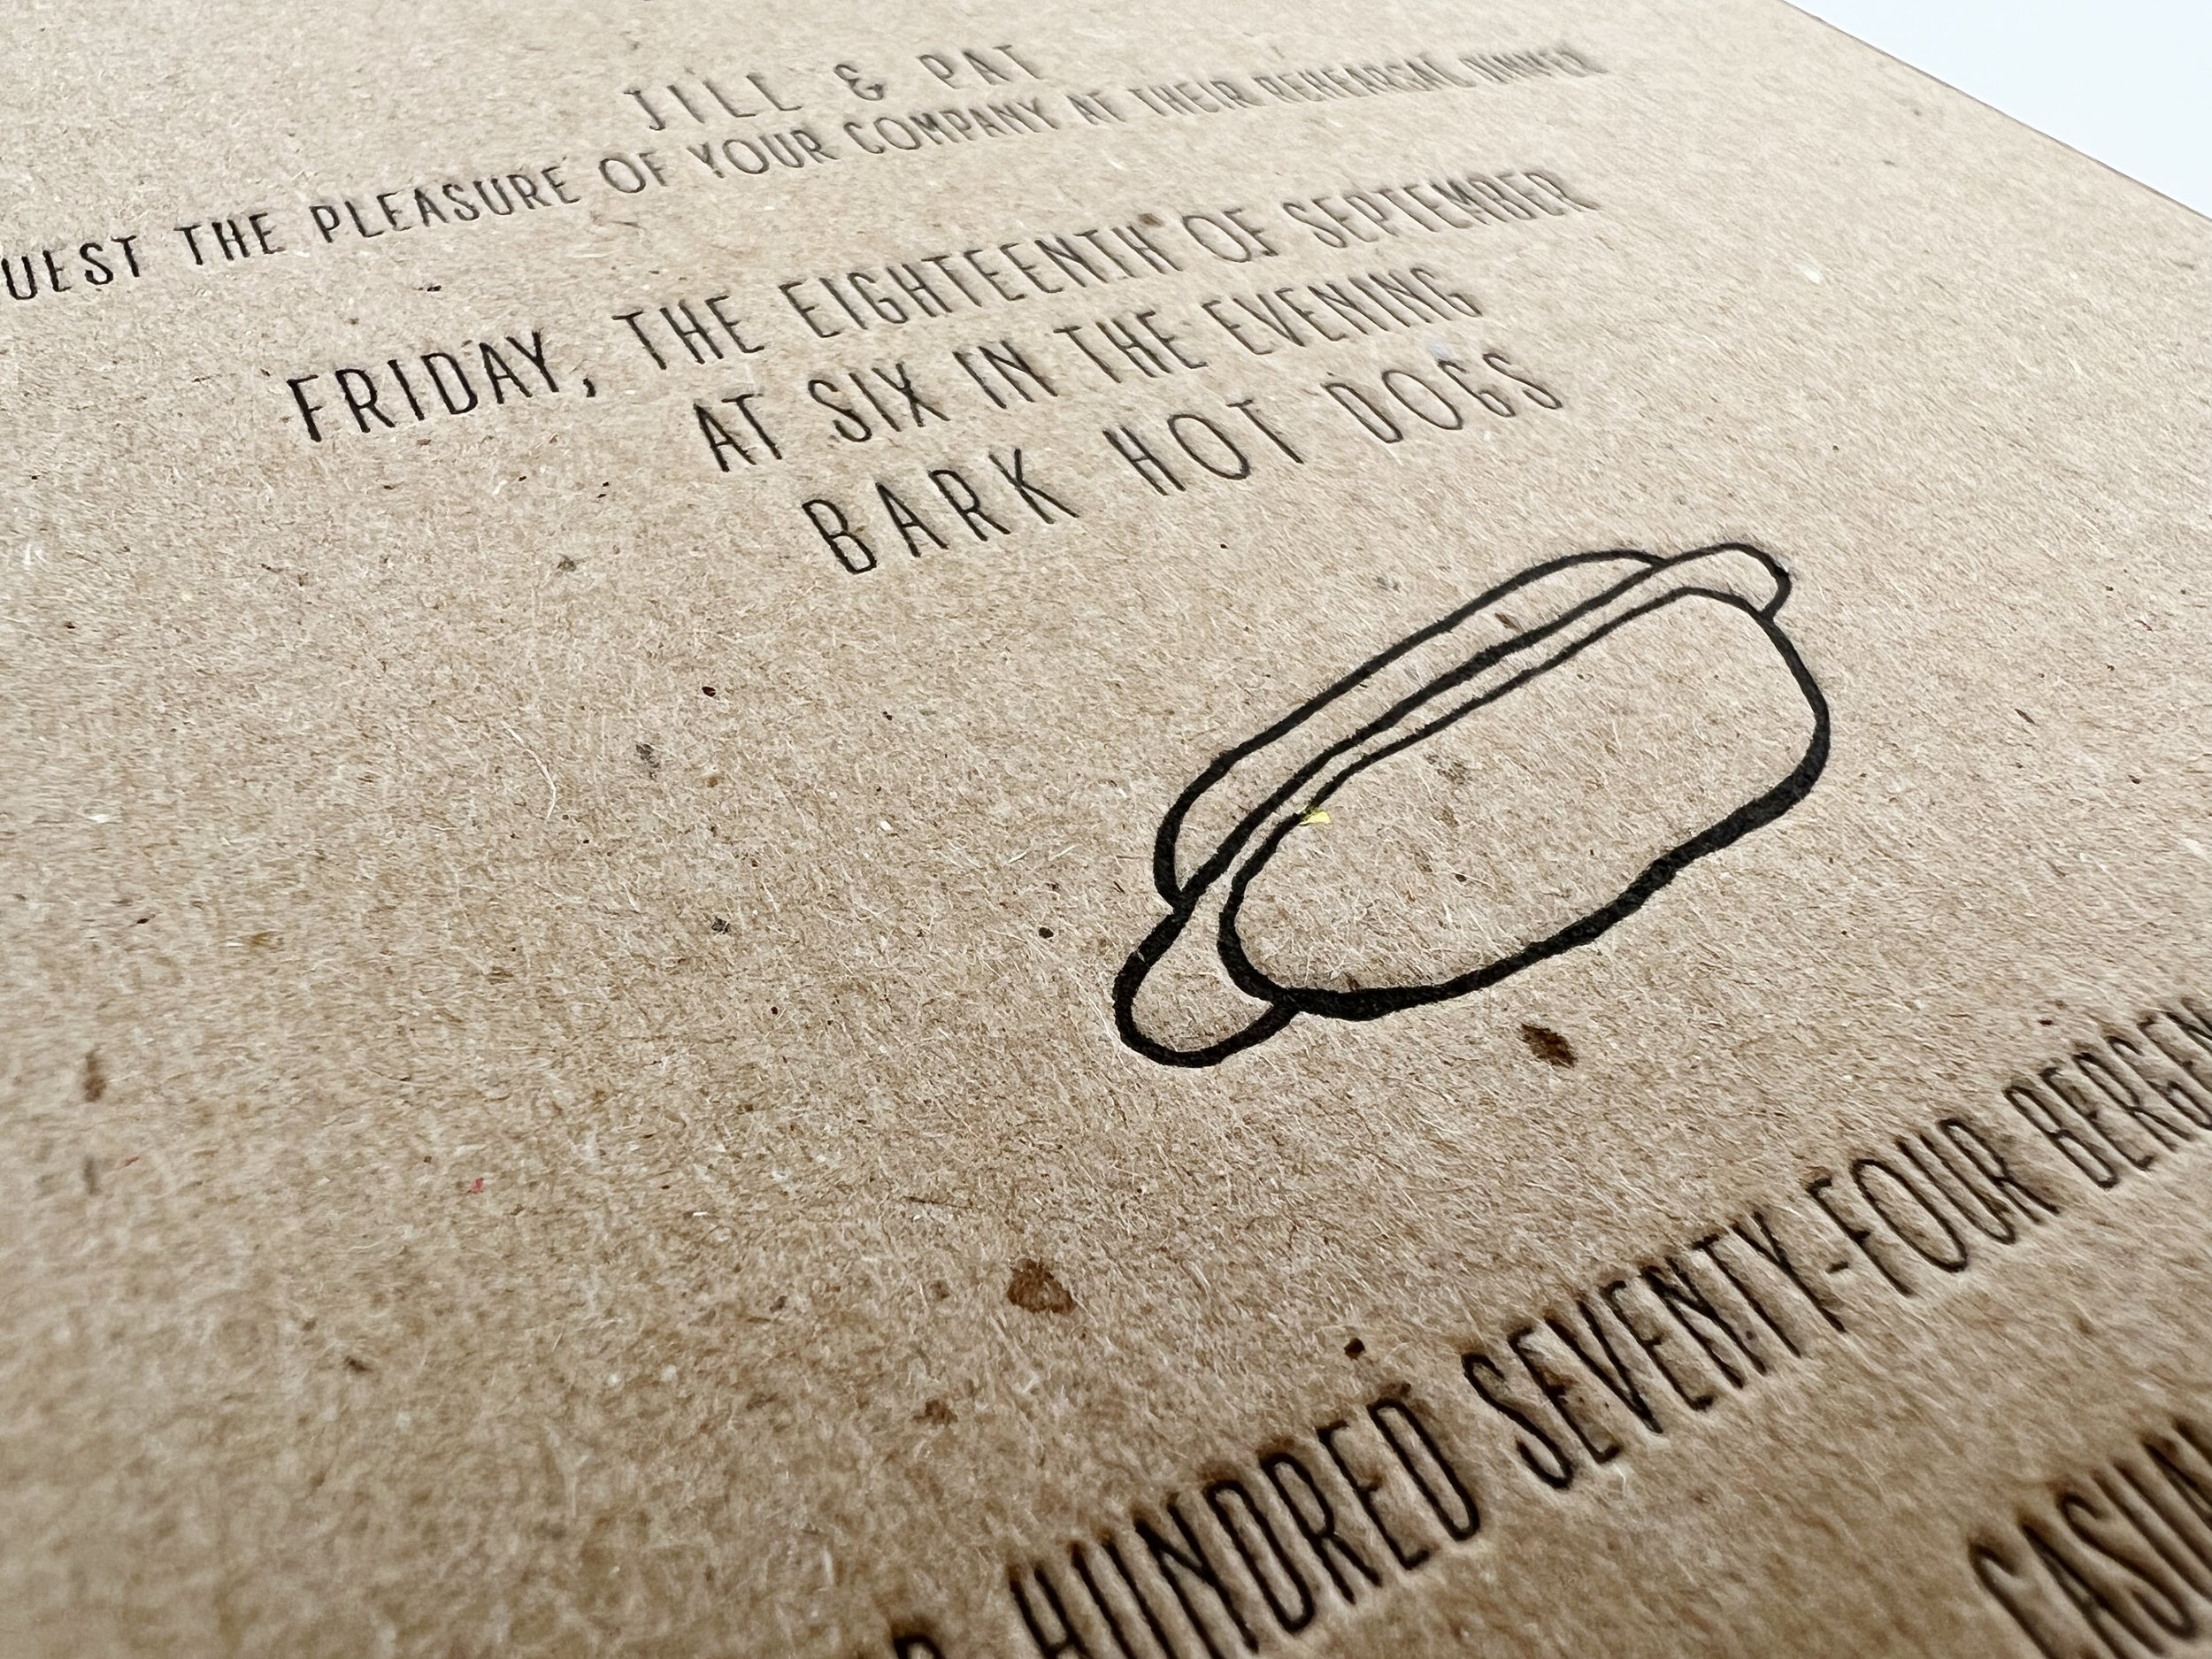 JILL & PAT
UEST THE PLEASURE OF YOUR COMPANY AT THEIR REHEARSAL DINNER
FRIDAY, THE EIGHTEENTH OF SEPTEMBER
AT SIX IN THE EVENING
BARK HOT DOGS
HUNDRED SEVENTY-FOUR BERGEN
CASUA